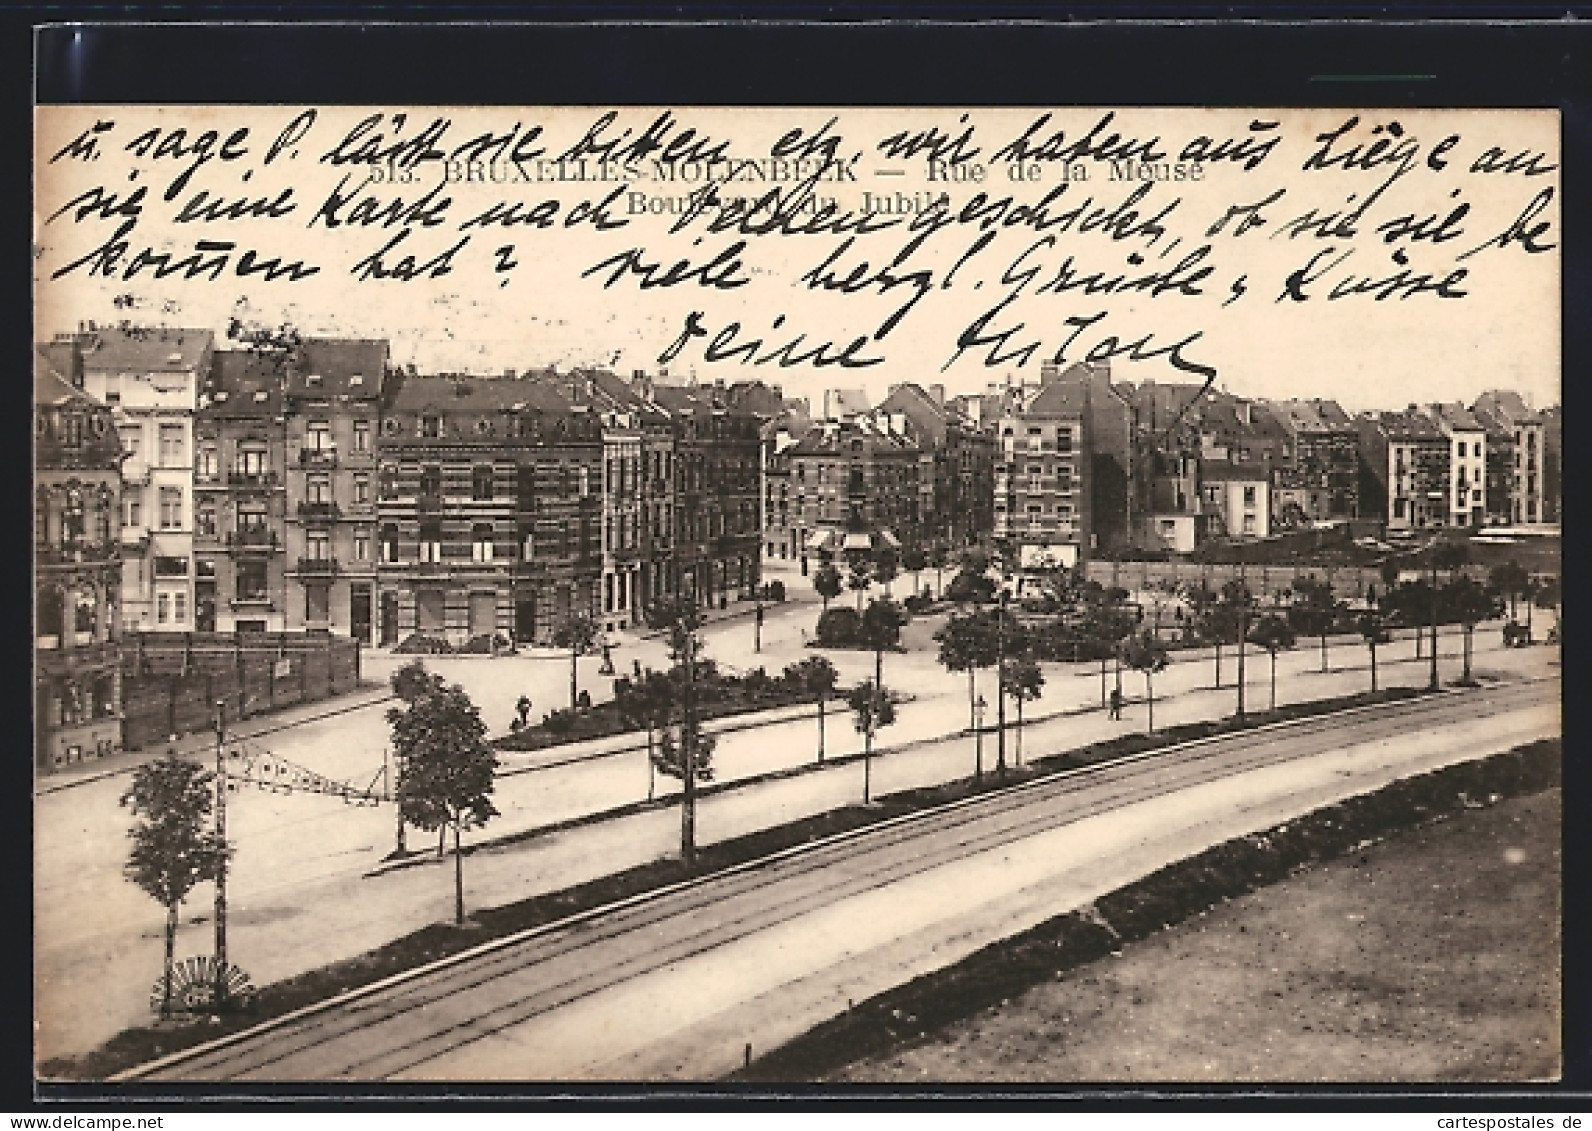 u. sage P. lässt sie bitten etz, wir haben aus Liège an
513. BRUXELLES-MOLENBEEK — Rue de la Meuse
sie eine Karte nach geschickt, ob sie sie be
Boulevard du Jubilé
kommen hat? viele herzl. Grüsse, Küsse
Deine
cartespostales de